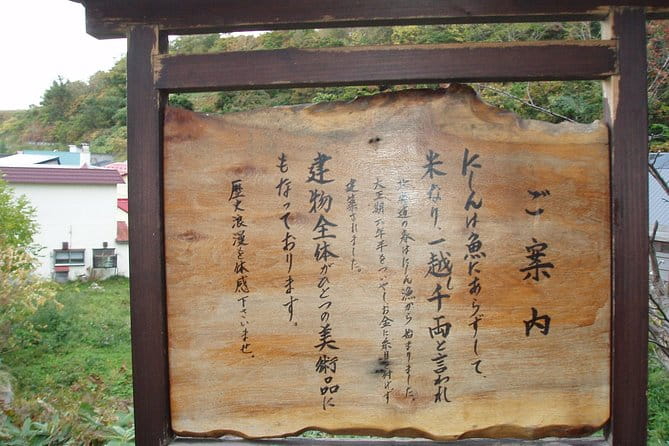 ご案内
にしんは魚にあらずして、
米なり、一越し千両と言われ
北海道の春はにしん漁から始まりました。
大正期、六年半をついやしお金に糸目を付けず
建築されました。
建物全体がひとつの美術品に
もなっております。
歴史浪漫を体感下さいませ。